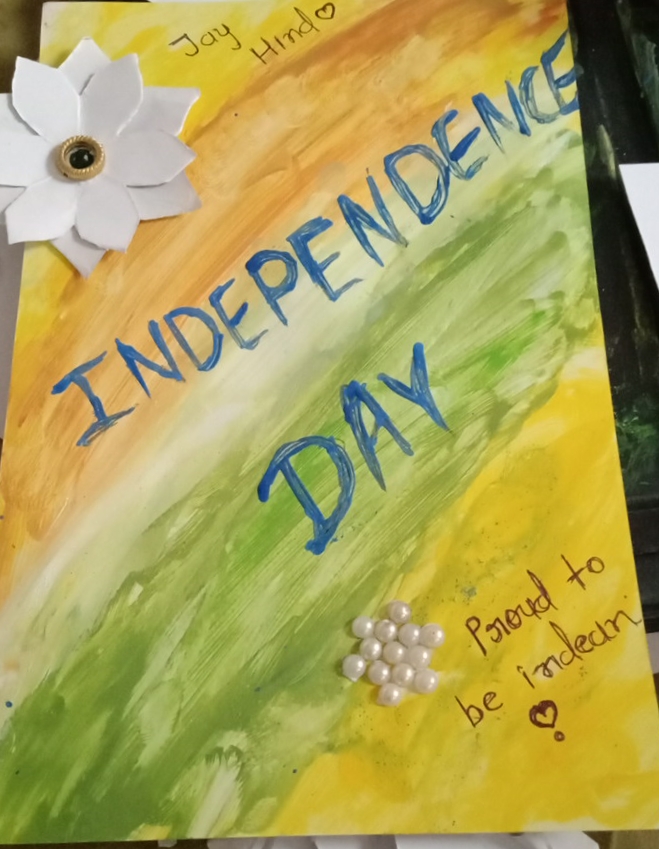 Jay
Hind
INDEPENDENCE
DAY
Proud to
be indean